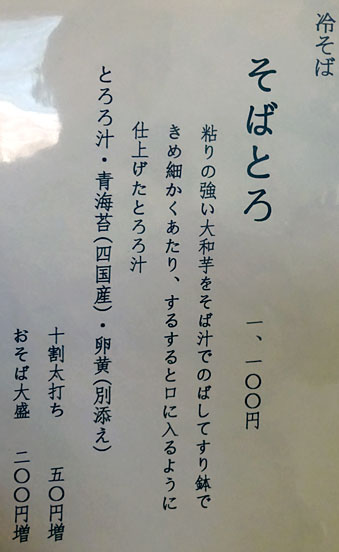 冷そば
そばとろ 一、一〇〇円
粘りの強い大和芋をそば汁でのばしてすり鉢で
きめ細かくあたり、するすると口に入るように
仕上げたとろろ汁
とろろ汁・青海苔(四国産)・卵黄(別添え)
十割太打ち 五〇円増
おそば大盛 二〇〇円増